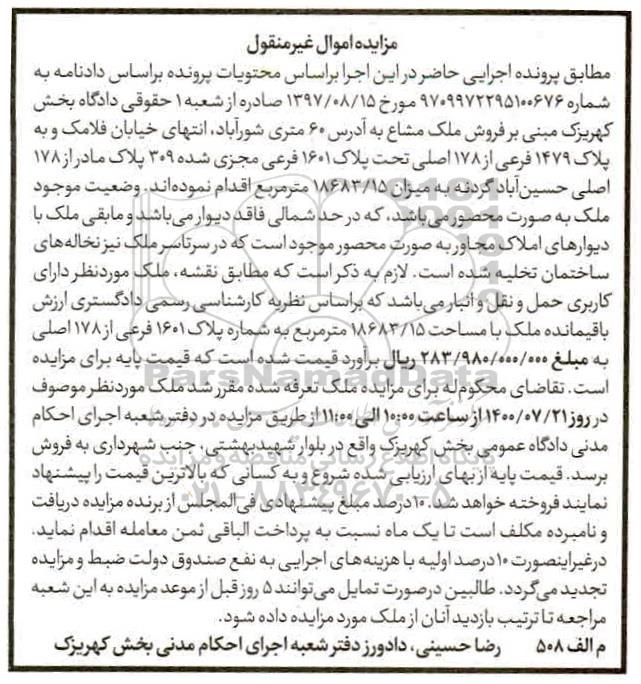 مزایده اموال غیرمنقول
مطابق پرونده اجرایی حاضر در این اجرا براساس محتویات پرونده براساس دادنامه به
شماره ۹۷۰۹۹۷۲۲۹۵۱۰۰۶۷۶ مورخ ۱۳۹۷/۰۸/۱۵ صادره از شعبه ۱ حقوقی دادگاه بخش
کهریزک مبنی بر فروش ملک مشاع به آدرس ۶۰ متری شورآباد، انتهای خیابان فلامک و به
پلاک ۱۴۷۹ فرعی از ۱۷۸ اصلی تحت پلاک ۱۶۰۱ فرعی مجزی شده ۳۰۹ پلاک مادر از ۱۷۸
اصلی حسین‌آباد گردنه به میزان ۱۸۶۸۳/۱۵ مترمربع اقدام نموده‌اند. وضعیت موجود
ملک به صورت محصور می‌باشد، که در حد شمالی فاقد دیوار می‌باشد و مابقی ملک با
دیوارهای املاک مجاور به صورت محصور موجود است که در سرتاسر ملک نیز نخاله‌های
ساختمان تخلیه شده است. لازم به ذکر است که مطابق نقشه، ملک موردنظر دارای
کاربری حمل و نقل و انبار می‌باشد که براساس نظریه کارشناسی رسمی دادگستری ارزش
باقیمانده ملک با مساحت ۱۸۶۸۳/۱۵ مترمربع به شماره پلاک ۱۶۰۱ فرعی از ۱۷۸ اصلی
به مبلغ ۲۸۳/۹۸۰/۰۰۰/۰۰۰ ریال برآورد قیمت شده است که قیمت پایه برای مزایده
است. تقاضای محکوم‌له برای مزایده ملک تعرفه شده مقرر شد ملک موردنظر موصوف
در روز ۱۴۰۰/۰۷/۲۱ از ساعت ۱۰:۰۰ الی ۱۱:۰۰ از طریق مزایده در دفتر شعبه اجرای احکام
مدنی دادگاه عمومی بخش کهریزک واقع در بلوار شهید بهشتی، جنب شهرداری به فروش
برسد. قیمت پایه از بهای ارزیابی شده شروع و به کسانی که بالاترین قیمت را پیشنهاد
نمایند فروخته خواهد شد. ۱۰ درصد مبلغ پیشنهادی فی‌المجلس از برنده مزایده دریافت
و نامبرده مکلف است تا یک ماه نسبت به پرداخت الباقی ثمن معامله اقدام نماید.
درغیراینصورت ۱۰ درصد اولیه با هزینه‌های اجرایی به نفع صندوق دولت ضبط و مزایده
تجدید می‌گردد. طالبین درصورت تمایل می‌توانند ۵ روز قبل از موعد مزایده به این شعبه
مراجعه تا ترتیب بازدید آنان از ملک مورد مزایده داده شود.
م الف ۵۰۸ رضا حسینی، دادورز دفتر شعبه اجرای احکام مدنی بخش کهریزک
ParsNamadData
۰۲۱-۸۸۳۴۹۶۷۰-۵